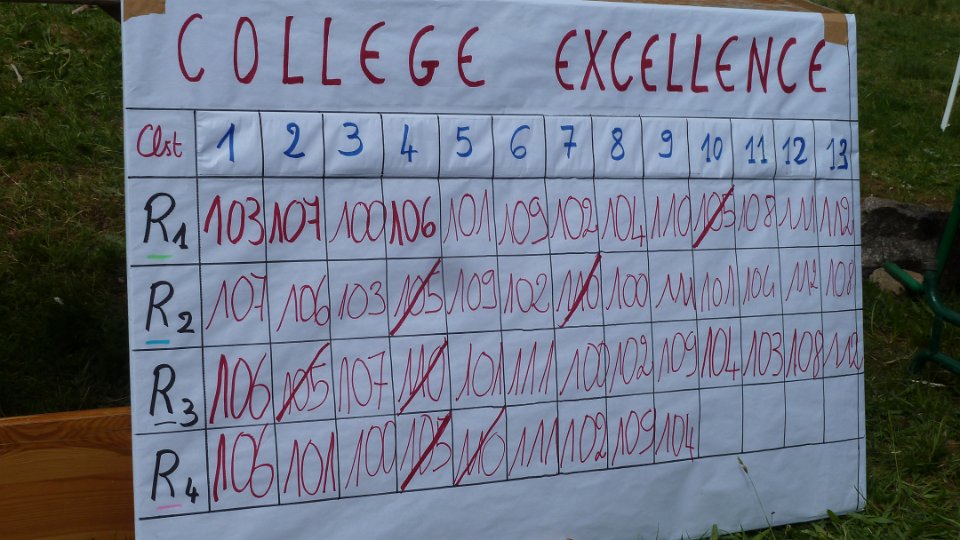 COLLEGE EXCELLENCE
Clst 1 2 3 4 5 6 7 8 9 10 11 12 13
R1 103 107 100 106 101 109 102 104 110 105 108 111 112
R2 107 106 103 105 109 102 110 100 111 101 104 112 108
R3 106 105 107 110 101 111 100 102 109 104 103 108 112
R4 106 101 100 105 110 111 102 109 104